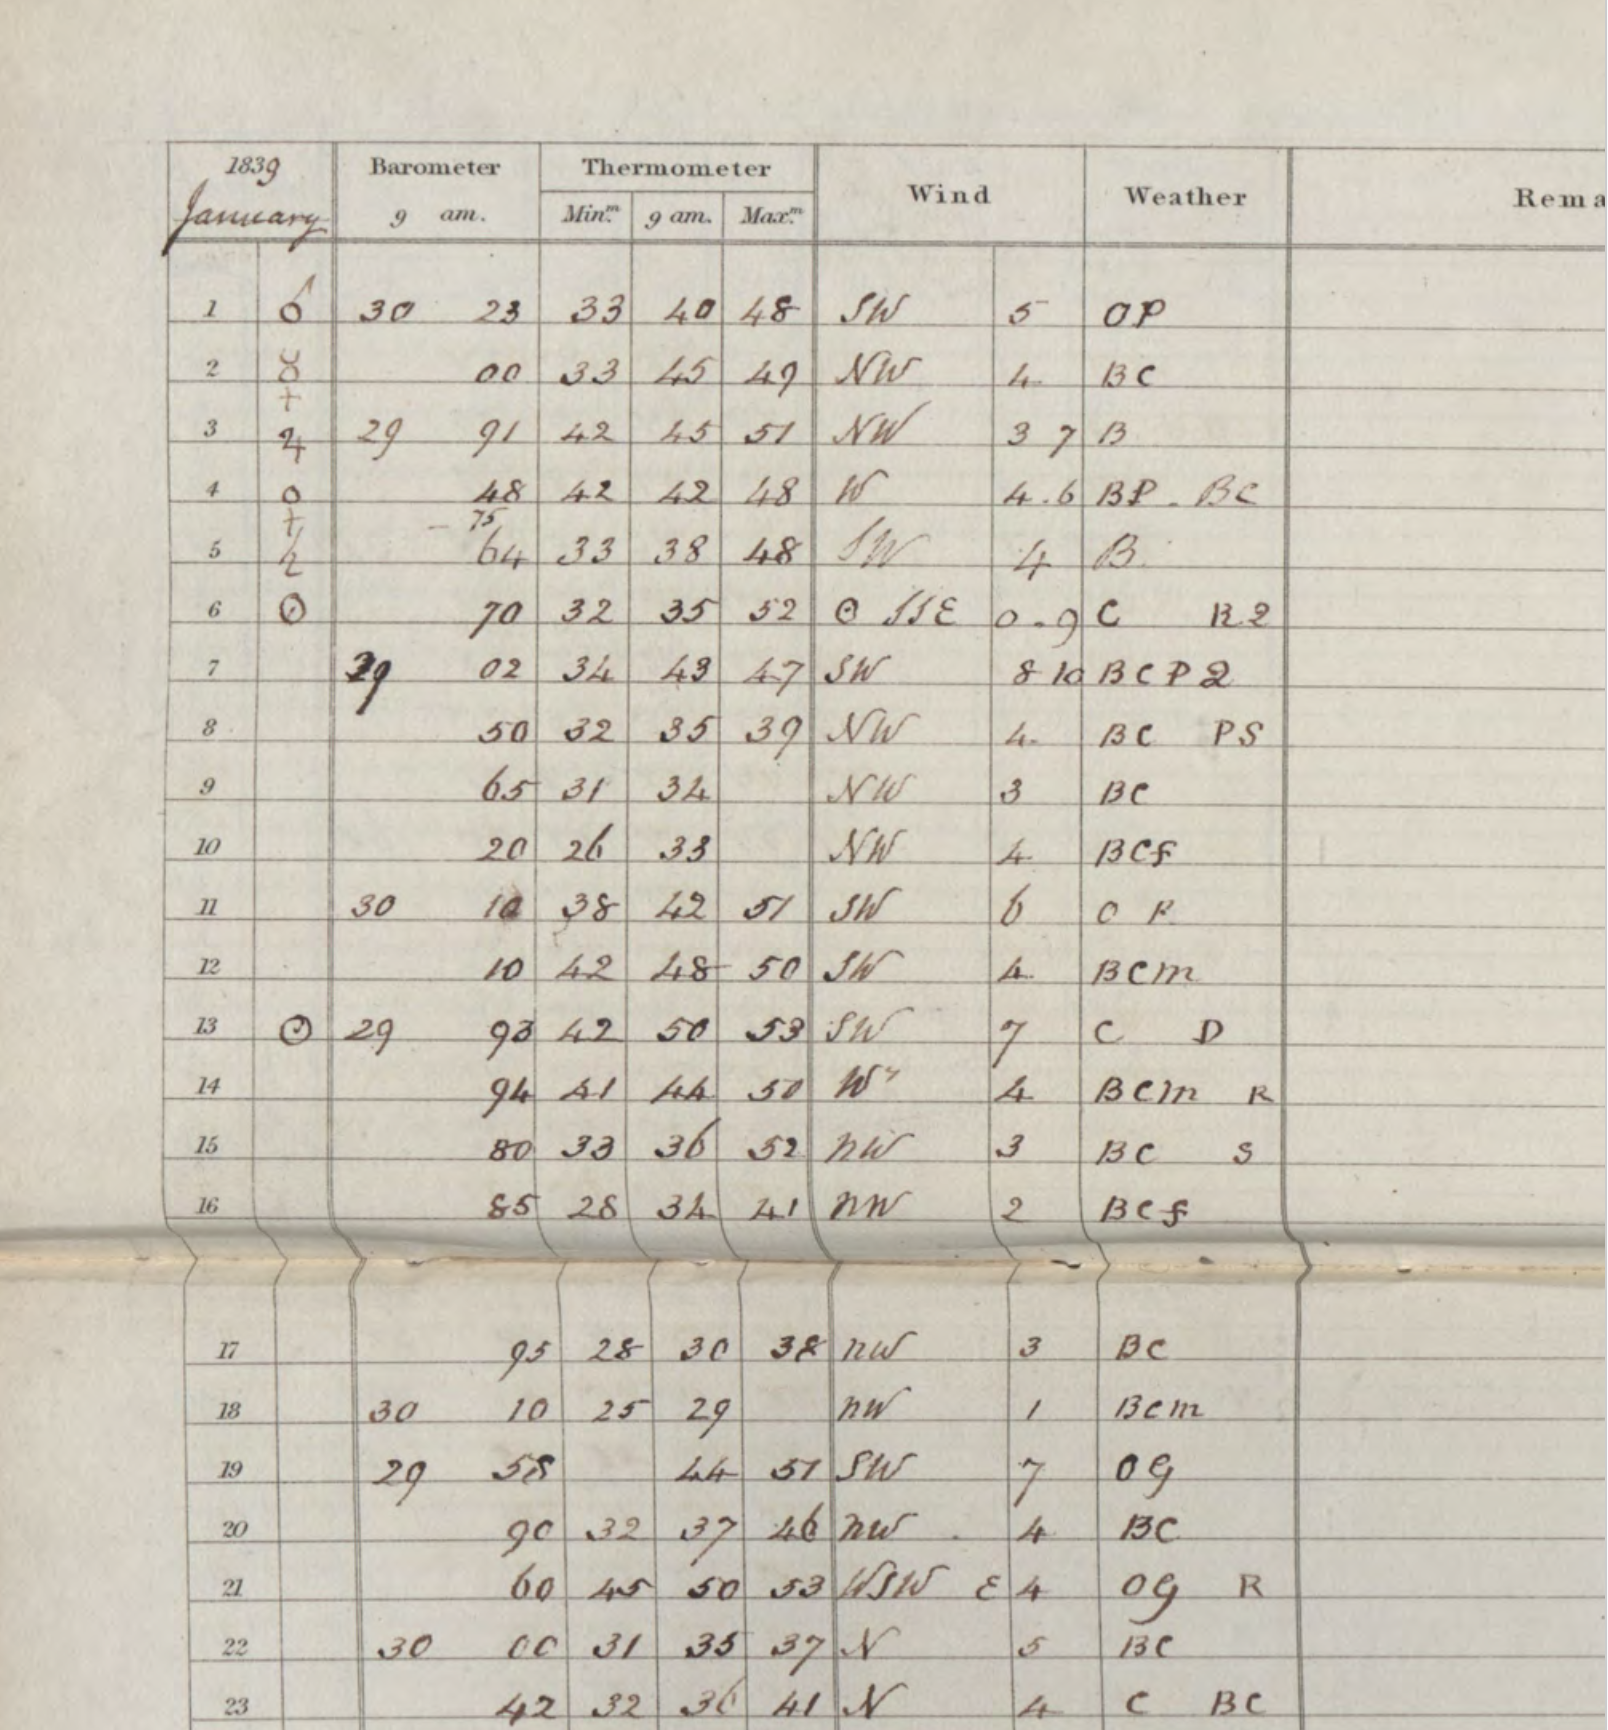 1839 Barometer Thermometer Wind Weather Rema
January 9 am. Min.m 9 am. Max.m
1 ♂ 30 23 33 40 48 SW 5 OP
2 ☿ 00 33 45 49 NW 4 BC
3 ♃ 29 91 42 45 51 NW 3 7 B
4 ♀ 48 42 42 48 W 4.6 BP - BC
- 75
5 ♄ 64 33 38 48 SW 4 B
6 ☉ 70 32 35 52 ☉ SSE 0-9 C R2
7 29 02 34 43 47 SW 8 10 BCP2
8 50 32 35 39 NW 4 BC PS
9 65 31 34 NW 3 BC
10 20 26 33 NW 4 BCf
11 30 10 38 42 51 SW 6 O R
12 10 42 48 50 SW 4 BCm
13 ☉ 29 93 42 50 53 SW 7 C D
14 94 41 44 50 Wy 4 BCm R
15 80 33 36 52 nW 3 BC S
16 85 28 34 41 nW 2 BCf
17 95 28 30 38 nW 3 BC
18 30 10 25 29 nW 1 BCm
19 29 58 44 51 SW 7 OG
20 90 32 37 46 nW 4 BC
21 60 45 50 53 WSW E 4 OG R
22 30 00 31 35 37 N 5 BC
23 42 32 36 41 N 4 C BC